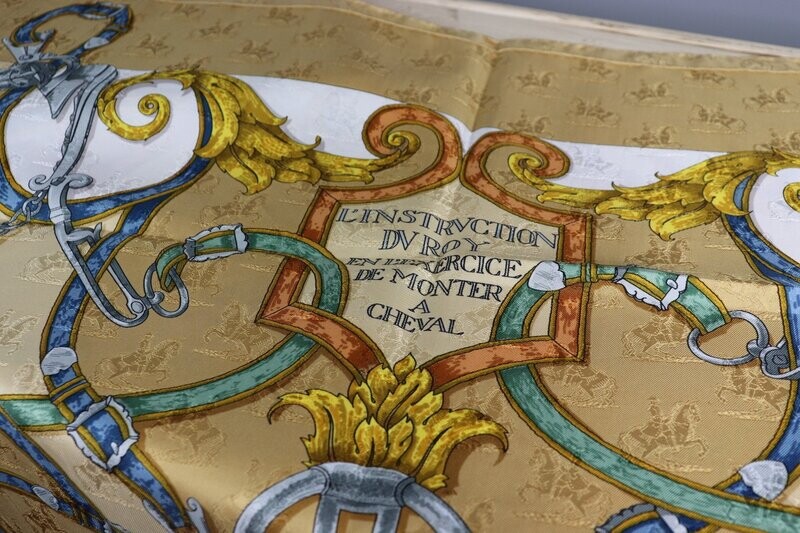 L'INSTRVCTION
DV ROY
EN L'EXERCICE
DE MONTER
A
CHEVAL